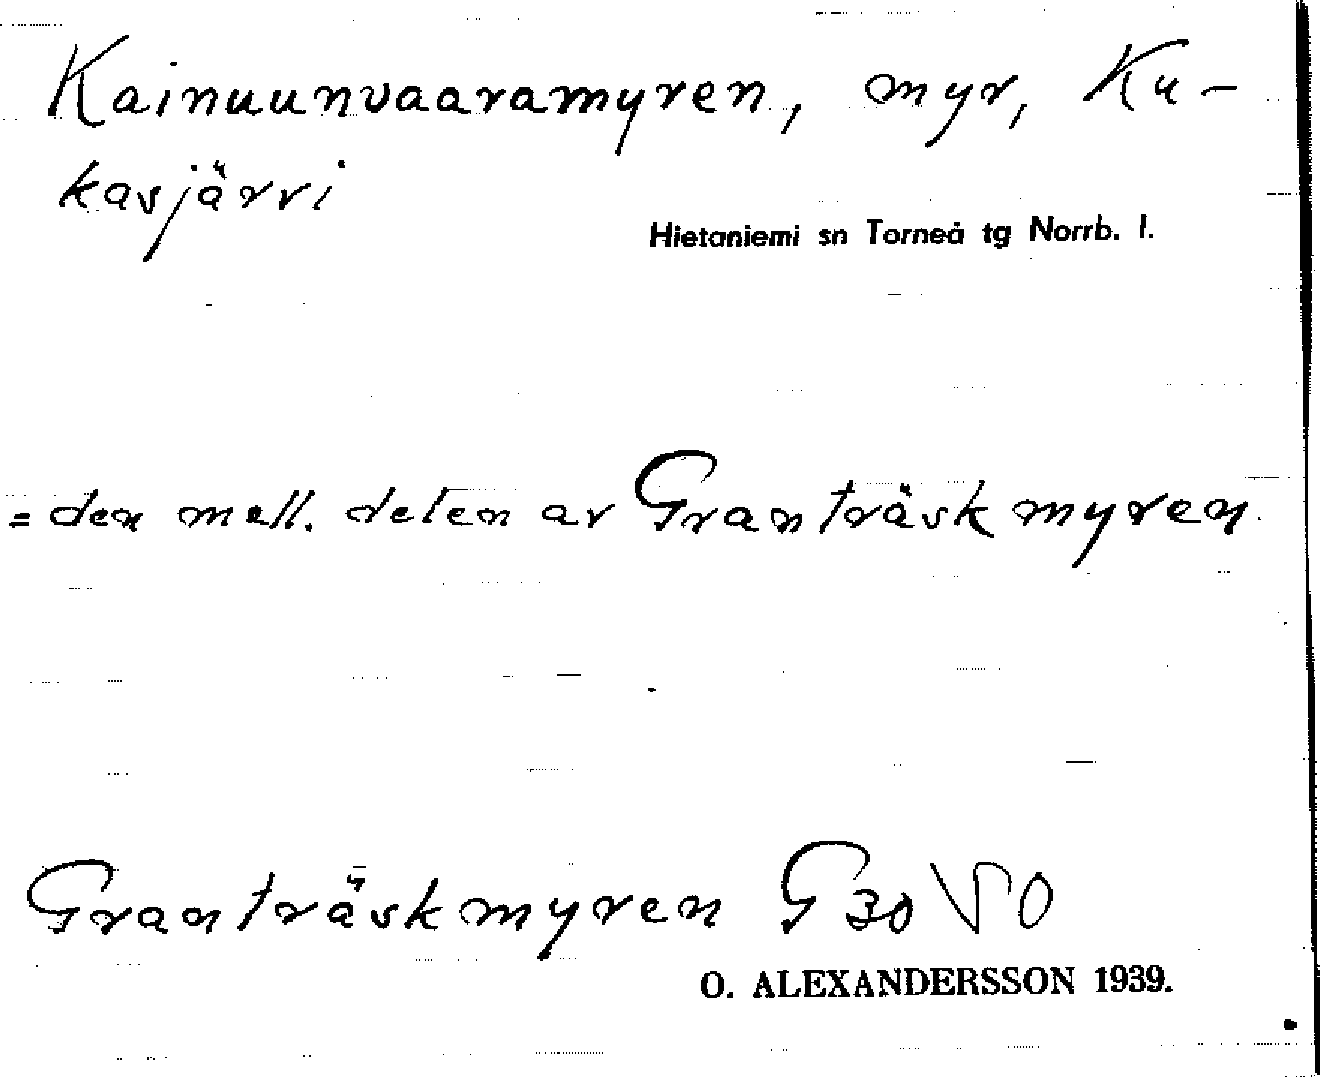 Kainuunvaaramyren, myr, Ku-
kasjärvi
Hietaniemi sn Torneå tg Norrb. l.
= den mell. delen av Granträskmyren.
Granträskmyren G 30 VO
O. ALEXANDERSSON 1939.